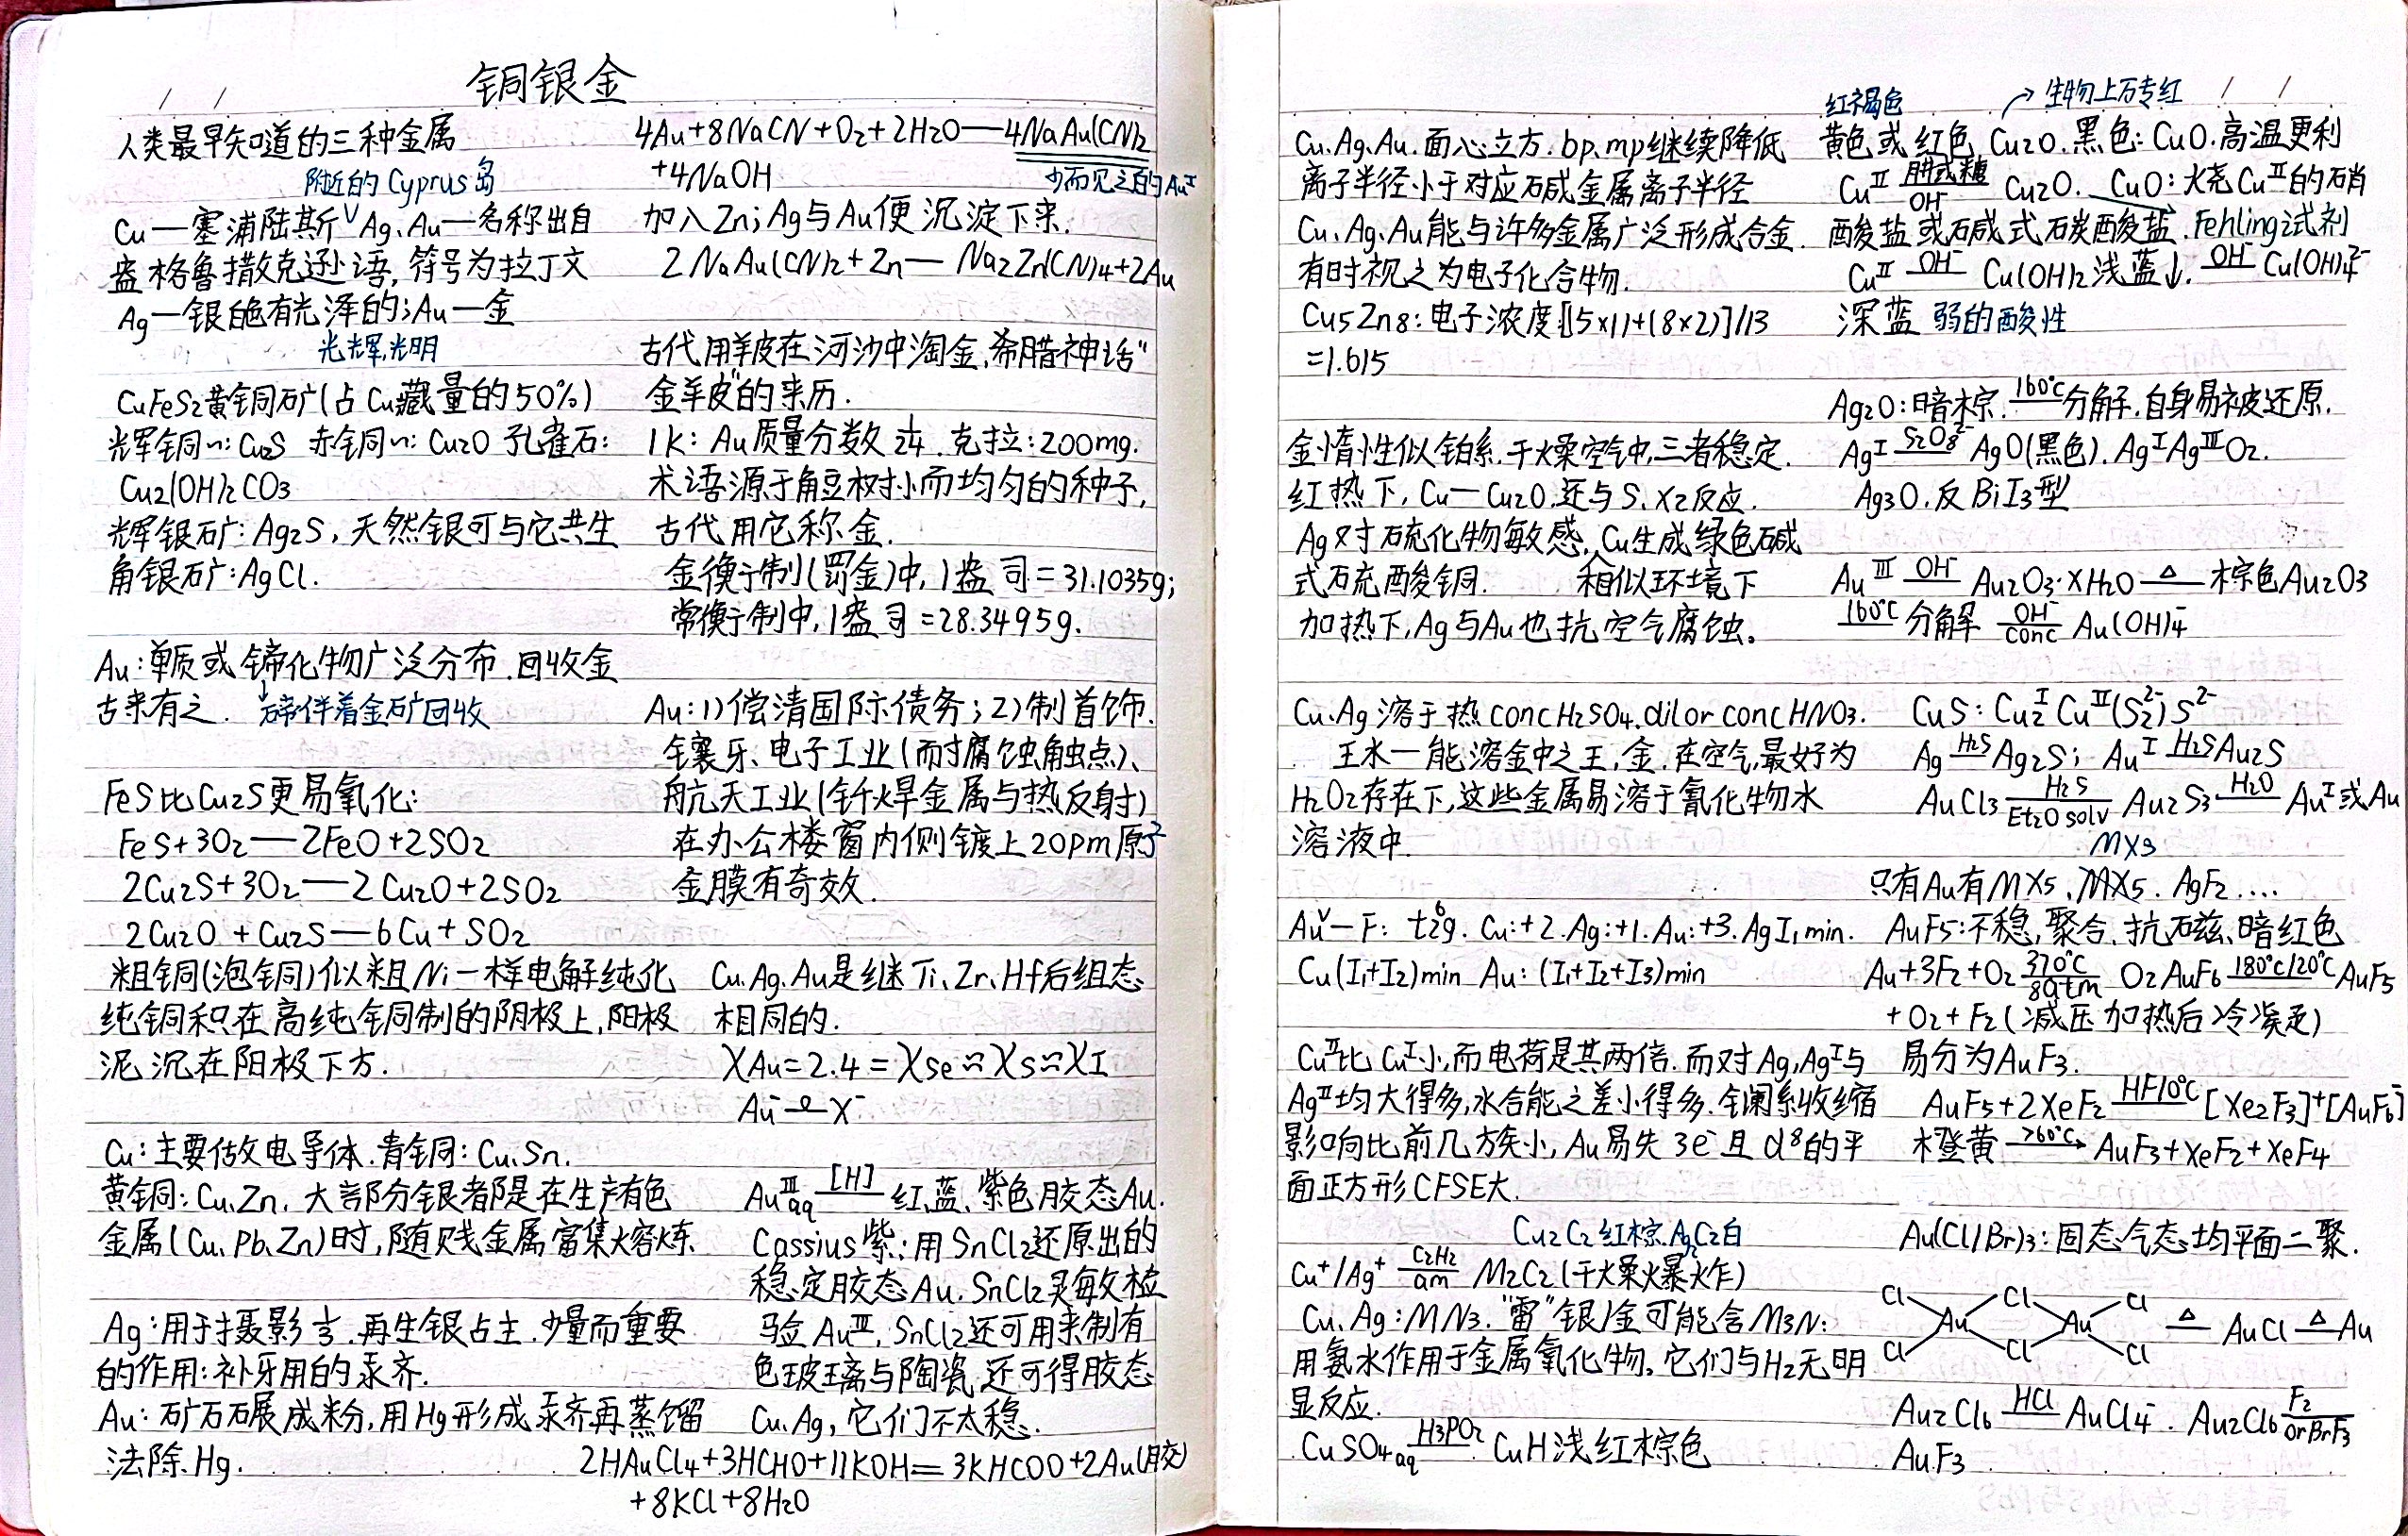 铜银金
人类最早知道的三种金属
附近的 Cyprus 岛
Cu—塞浦陆斯∨Ag、Au—名称出自
盎格鲁撒克逊语, 符号为拉丁文
Ag—银白色有光泽的; Au—金
光辉,光明
CuFeS2黄铜矿(占Cu藏量的50%)
辉铜~: Cu2S 赤铜~: Cu2O 孔雀石:
Cu2(OH)2CO3
辉银矿: Ag2S, 天然银可与它共生
角银矿: AgCl.
Au: 单质或碲化物广泛分布. 回收金
古来有之. 碲伴着金矿回收
FeS比Cu2S更易氧化:
FeS+3O2—2FeO+2SO2
2Cu2S+3O2—2Cu2O+2SO2
2Cu2O+Cu2S—6Cu+SO2
粗铜(泡铜)似粗Ni一样电解纯化
纯铜积在高纯铜制的阴极上,阳极
泥沉在阳极下方.
Cu: 主要做电导体. 青铜: Cu、Sn.
黄铜: Cu、Zn. 大部分银都是在生产有色
金属(Cu、Pb、Zn)时, 随贱金属富集熔炼.
Ag: 用于摄影业. 再生银占主. 少量而重要
的作用: 补牙用的汞齐.
Au: 矿石碾成粉, 用Hg形成汞齐再蒸馏
法除Hg.
4Au+8NaCN+O2+2H2O—4NaAu(CN)2
+4NaOH 少而见之的Auᴵ
加入Zn; Ag与Au便沉淀下来.
2NaAu(CN)2+Zn—Na2Zn(CN)4+2Au
古代用羊皮在河沙中淘金, 希腊神话“
金羊皮”的来历.
1K: Au质量分数 1/24. 克拉: 200mg.
术语源于角豆树小而均匀的种子,
古代用它称金.
金衡制(罚金)中, 1盎司=31.1035g;
常衡制中, 1盎司=28.3495g.
Au: 1)偿清国际债务; 2)制首饰.
镶牙、电子工业(耐腐蚀触点)、
航天工业(钎焊金属与热反射)
在办公楼窗内侧镀上20pm原子
金膜有奇效.
Cu、Ag、Au是继Ti、Zr、Hf后组态
相同的.
χAu=2.4=χSe≈χS≈χI
Au⁻—e—X⁻
Auᴵᴵᴵaq —[H]— 红、蓝、紫色胶态Au.
Cassius紫: 用SnCl2还原出的
稳定胶态Au. SnCl2灵敏检
验Auᴵᴵᴵ, SnCl2还可用来制有
色玻璃与陶瓷. 还可得胶态
Cu、Ag, 它们不太稳.
2HAuCl4+3HCHO+11KOH=3KHCOO+2Au(胶)
+8KCl+8H2O
Cu、Ag、Au. 面心立方. bp、mp继续降低
离子半径小于对应碱金属离子半径
Cu、Ag、Au能与许多金属广泛形成合金.
有时视之为电子化合物.
Cu5Zn8: 电子浓度[(5×1)+(8×2)]/13
=1.615
金惰性似铂系. 干燥空气中, 三者稳定.
红热下, Cu—Cu2O. 还与S、X2反应.
Ag对硫化物敏感, Cu生成绿色碱
式硫酸铜. 相似环境下
加热下, Ag与Au也抗空气腐蚀。
Cu、Ag溶于热concH2SO4、dil or concHNO3.
王水—能溶金中之王, 金. 在空气, 最好为
H2O2存在下, 这些金属易溶于氰化物水
溶液中.
Auⱽ—F: t2g⁶. Cu:+2. Ag:+1. Au:+3. AgI1min.
Cu(I1+I2)min Au:(I1+I2+I3)min
Cuᴵᴵ比Cuᴵ小, 而电荷是其两倍. 而对Ag, Agᴵ与
Agᴵᴵ均大得多, 水合能之差小得多. 镧系收缩
影响比前几族小, Au易失3e⁻且d⁸的平
面正方形CFSE大.
Cu2C2红棕. Ag2C2白
Cu⁺/Ag⁺ —C2H2/am— M2C2(干燥爆炸)
Cu、Ag: MN3. “雷”银/金可能含M3N:
用氨水作用于金属氧化物。它们与H2无明
显反应.
CuSO4aq —H3PO2— CuH浅红棕色
红褐色 → 生物上万专红
黄色或红色 Cu2O. 黑色: CuO. 高温更利
Cuᴵᴵ —肼或糖/OH⁻— Cu2O. CuO: 烧Cuᴵᴵ的硝
酸盐或碱式碳酸盐. Fehling试剂
Cuᴵᴵ —OH⁻— Cu(OH)2浅蓝↓. —OH⁻— Cu(OH)4²⁻
深蓝 弱的酸性
Ag2O: 暗棕. —160℃— 分解. 自身易被还原.
Agᴵ —S2O8²⁻— AgO(黑色). AgᴵAgᴵᴵᴵO2.
Ag3O. 反BiI3型
Auᴵᴵᴵ —OH⁻— Au2O3·xH2O —△— 棕色Au2O3
—160℃— 分解 —OH⁻/conc— Au(OH)4⁻
CuS: Cu2ᴵCuᴵᴵ(S2²⁻)S²⁻
Ag —H2S— Ag2S; Auᴵ —H2S— Au2S
AuCl3 —H2S/Et2O solv— Au2S3 —H2O— Auᴵ或Au
MX3
只有Au有MX5、MX5. AgF2....
AuF5: 不稳, 聚合, 抗磁、暗红色
Au+3F2+O2 —370℃/8atm— O2AuF6 —180℃/20℃— AuF5
+O2+F2(减压加热后冷凝是)
易分为AuF3.
AuF5+2XeF2 —HF/0℃— [Xe2F3]⁺[AuF6]⁻
橙黄 —>60℃→ AuF3+XeF2+XeF4
Au(Cl/Br)3: 固态、气态均平面二聚.
Cl Cl Cl
Au Au —△— AuCl —△— Au
Cl Cl Cl
Au2Cl6 —HCl— AuCl4⁻. Au2Cl6 —F2/or BrF3—
AuF3